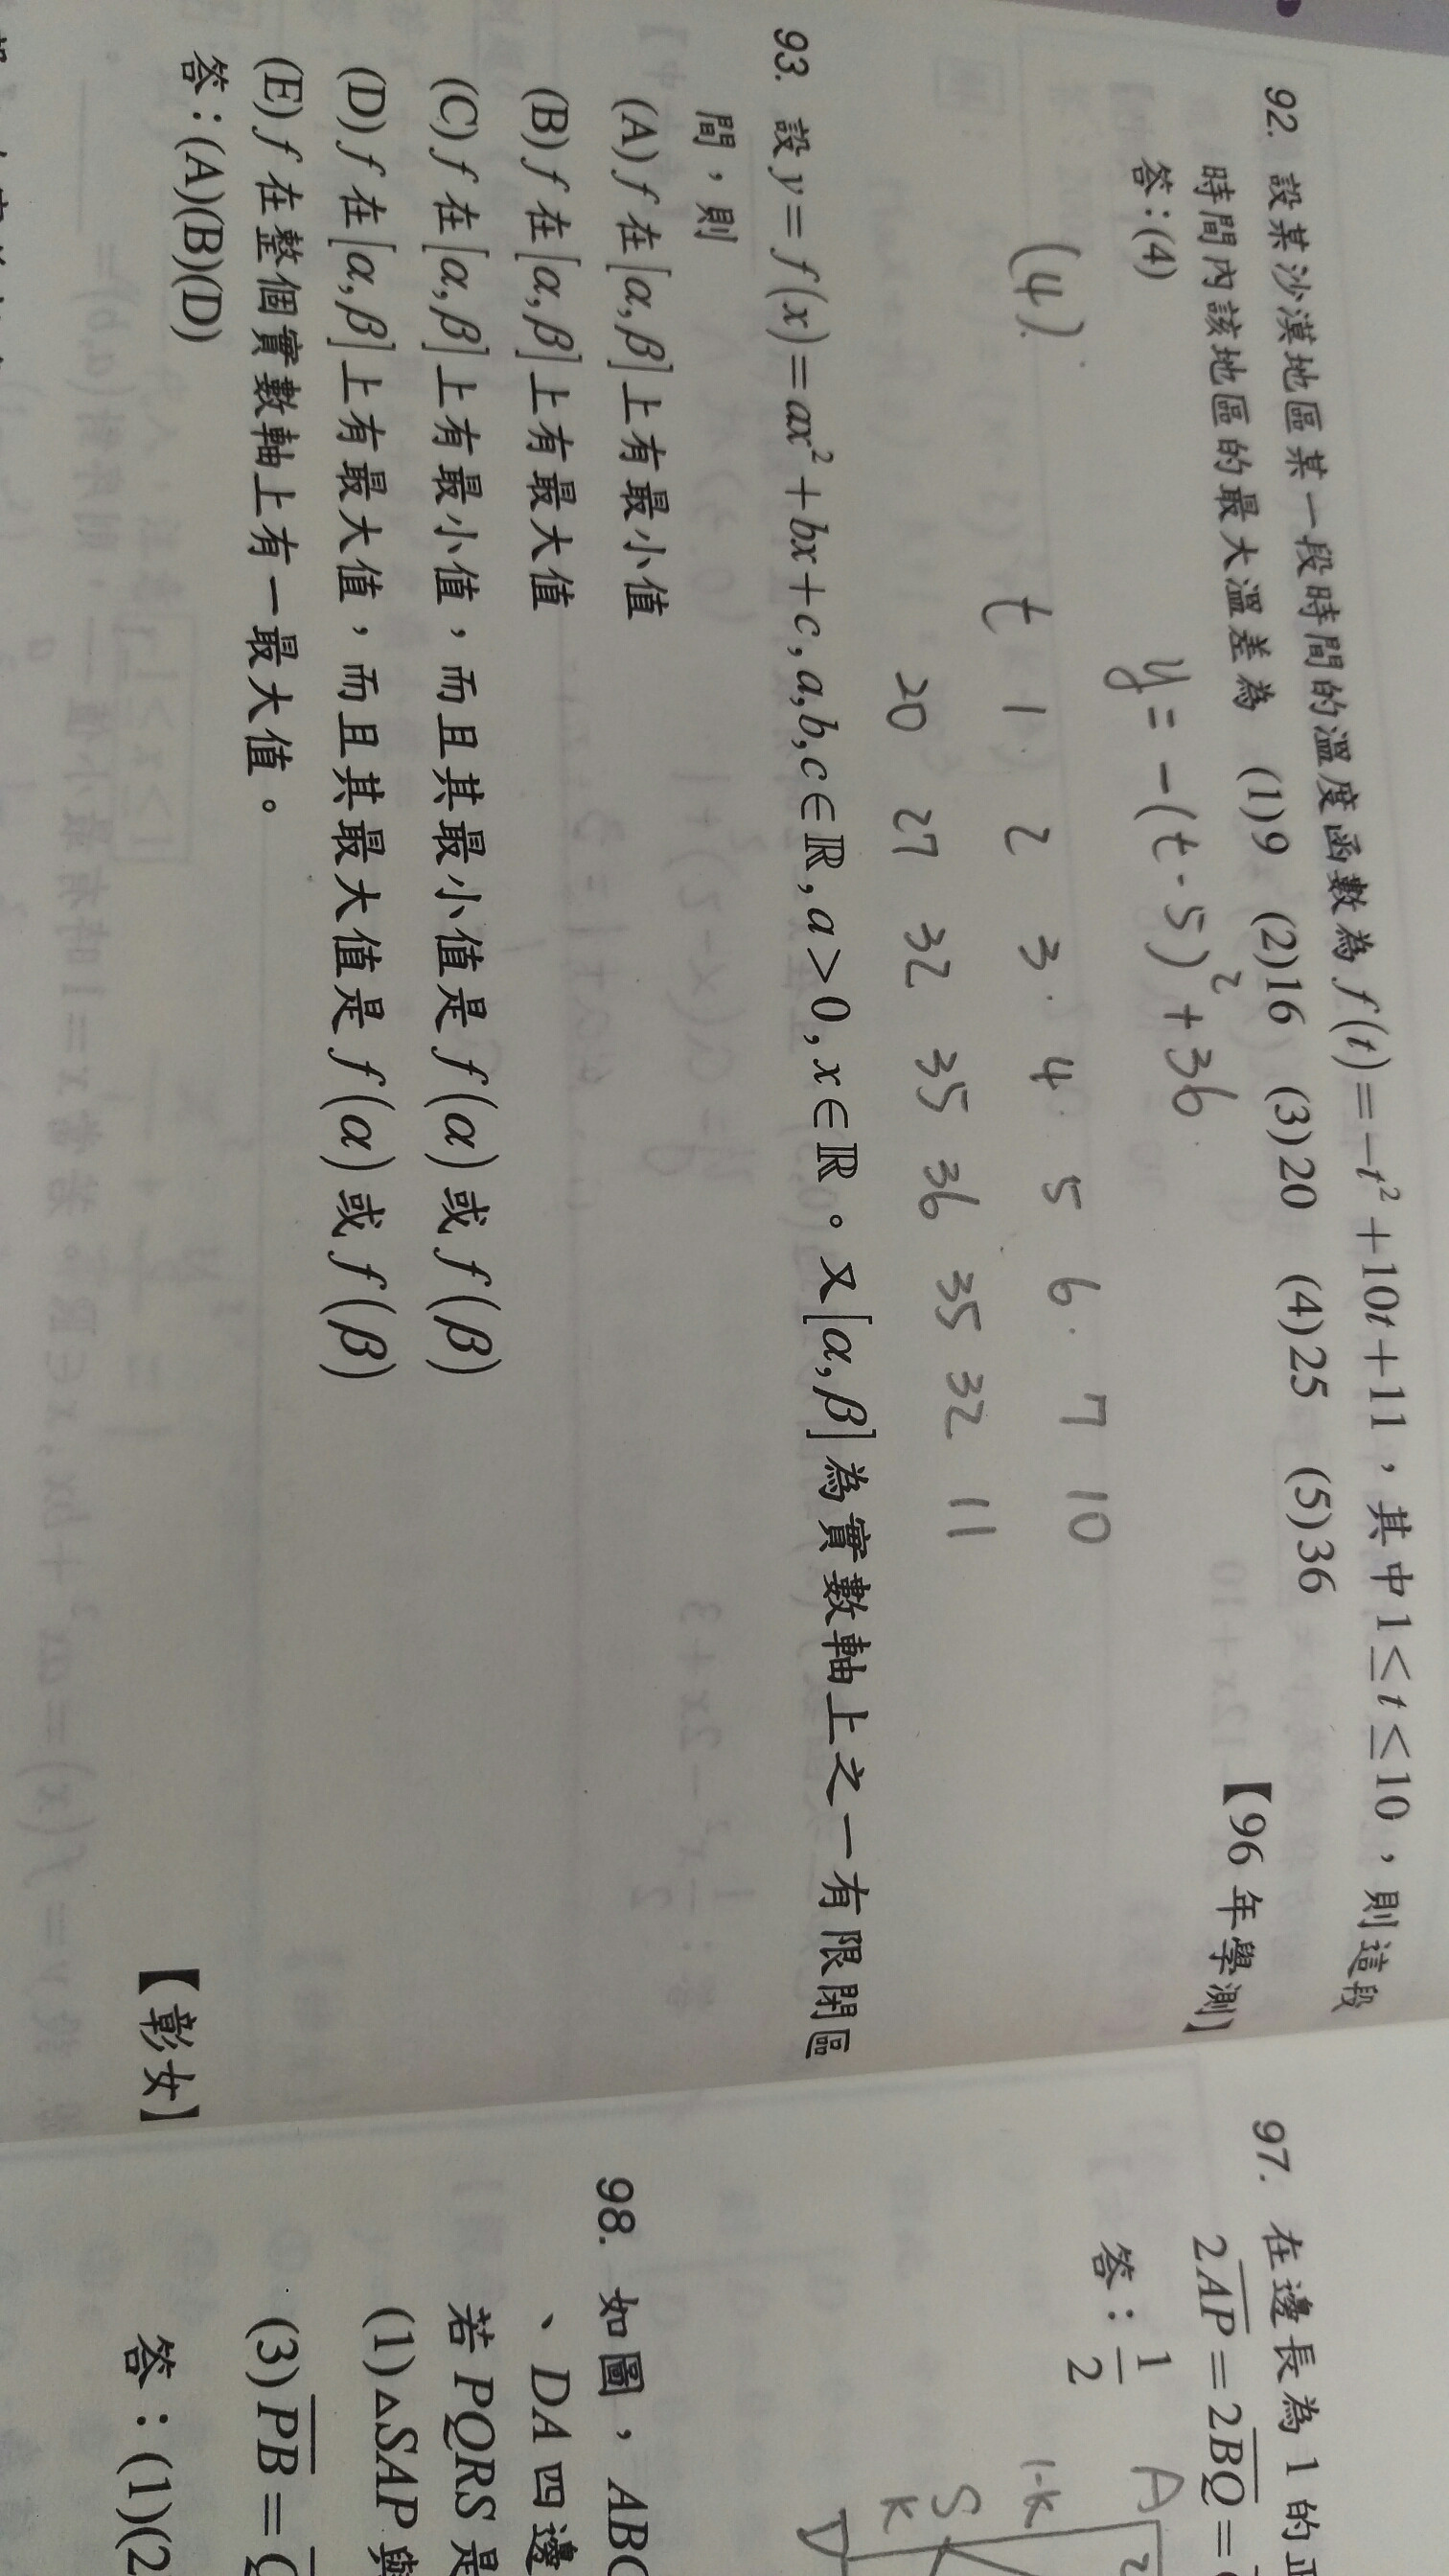 92. 設某沙漠地區某一段時間的溫度函數為 f(t)=-t²+10t+11，其中1≤t≤10，則這段
時間內該地區的最大溫差為 (1)9 (2)16 (3)20 (4)25 (5)36
【96 年學測】
答:(4)
y=-(t-5)²+36
(4)
t 1 2 3 4 5 6 7 10
20 27 32 35 36 35 32 11
93. 設y=f(x)=ax²+bx+c,a,b,c∈ℝ,a>0,x∈ℝ。又[α,β]為實數軸上之一有限閉區
間，則
(A)f在[α,β]上有最小值
(B)f在[α,β]上有最大值
(C)f在[α,β]上有最小值，而且其最小值是f(α)或f(β)
(D)f在[α,β]上有最大值，而且其最大值是f(α)或f(β)
(E)f在整個實數軸上有一最大值。
答:(A)(B)(D)
【彰女】
97. 在邊長為1的正
2AP=2BQ=
答：1/2
A
1-k
S
k
D
98. 如圖，ABC
、DA四邊
若PQRS是
(1)△SAP與
(3)PB=
答：(1)(2